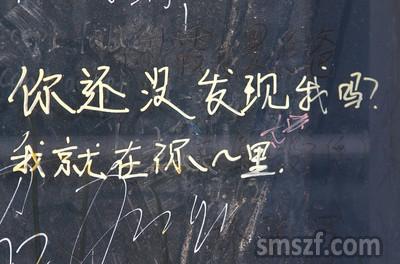 你还没发现我吗?
我就在你心里.
smszf.com